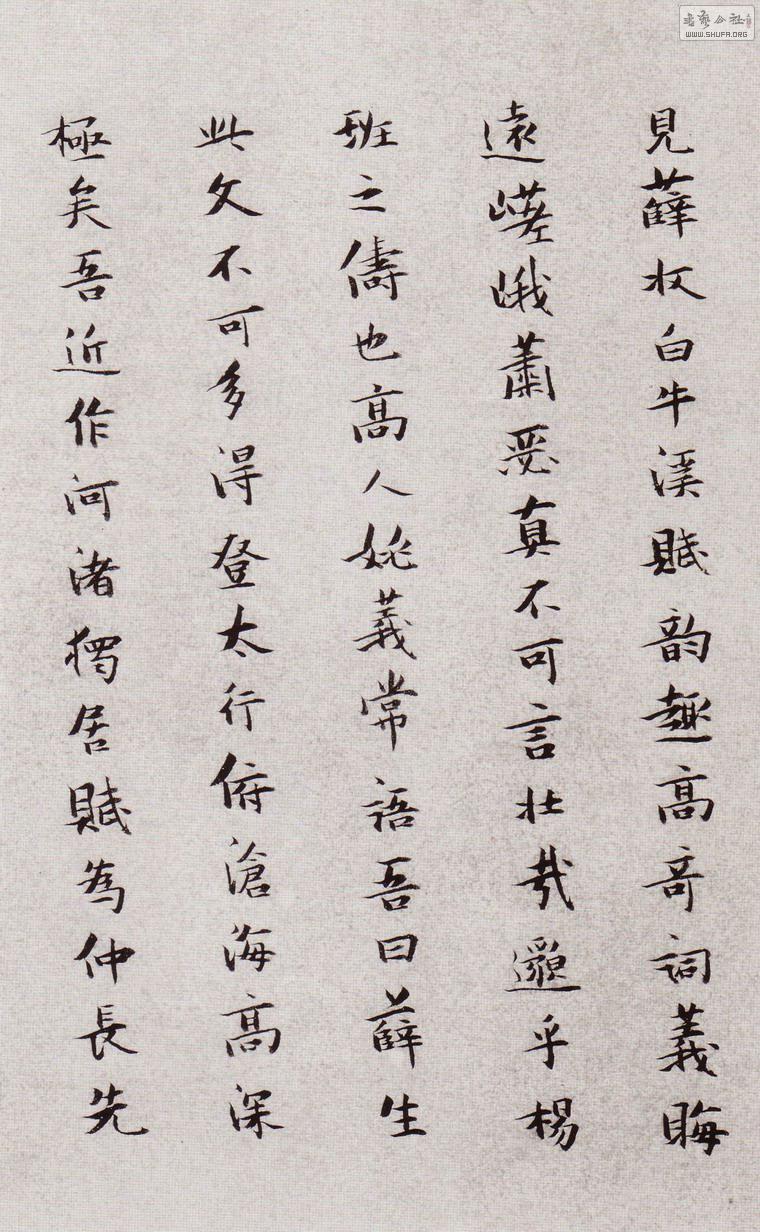 見薛收白牛溪賦韵趣高奇詞義晦
遠嵯峨蕭瑟真不可言壯哉邈乎楊
班之儔也高人姚義常語吾曰薛生
此文不可多得登太行俯滄海高深
極矣吾近作河渚獨居賦為仲長先
書藝公社
WWW.SHUFA.ORG